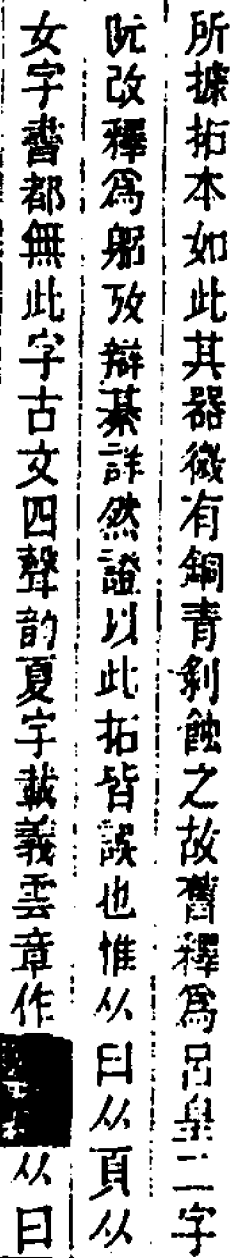 所據拓本如此其器微有銅青剝蝕之故舊釋爲呂皇二字
阮改釋爲躳攷辯綦詳然證以此拓皆誤也惟从日从頁从
女字書都無此字古文四聲韵夏字載義雲章作从日